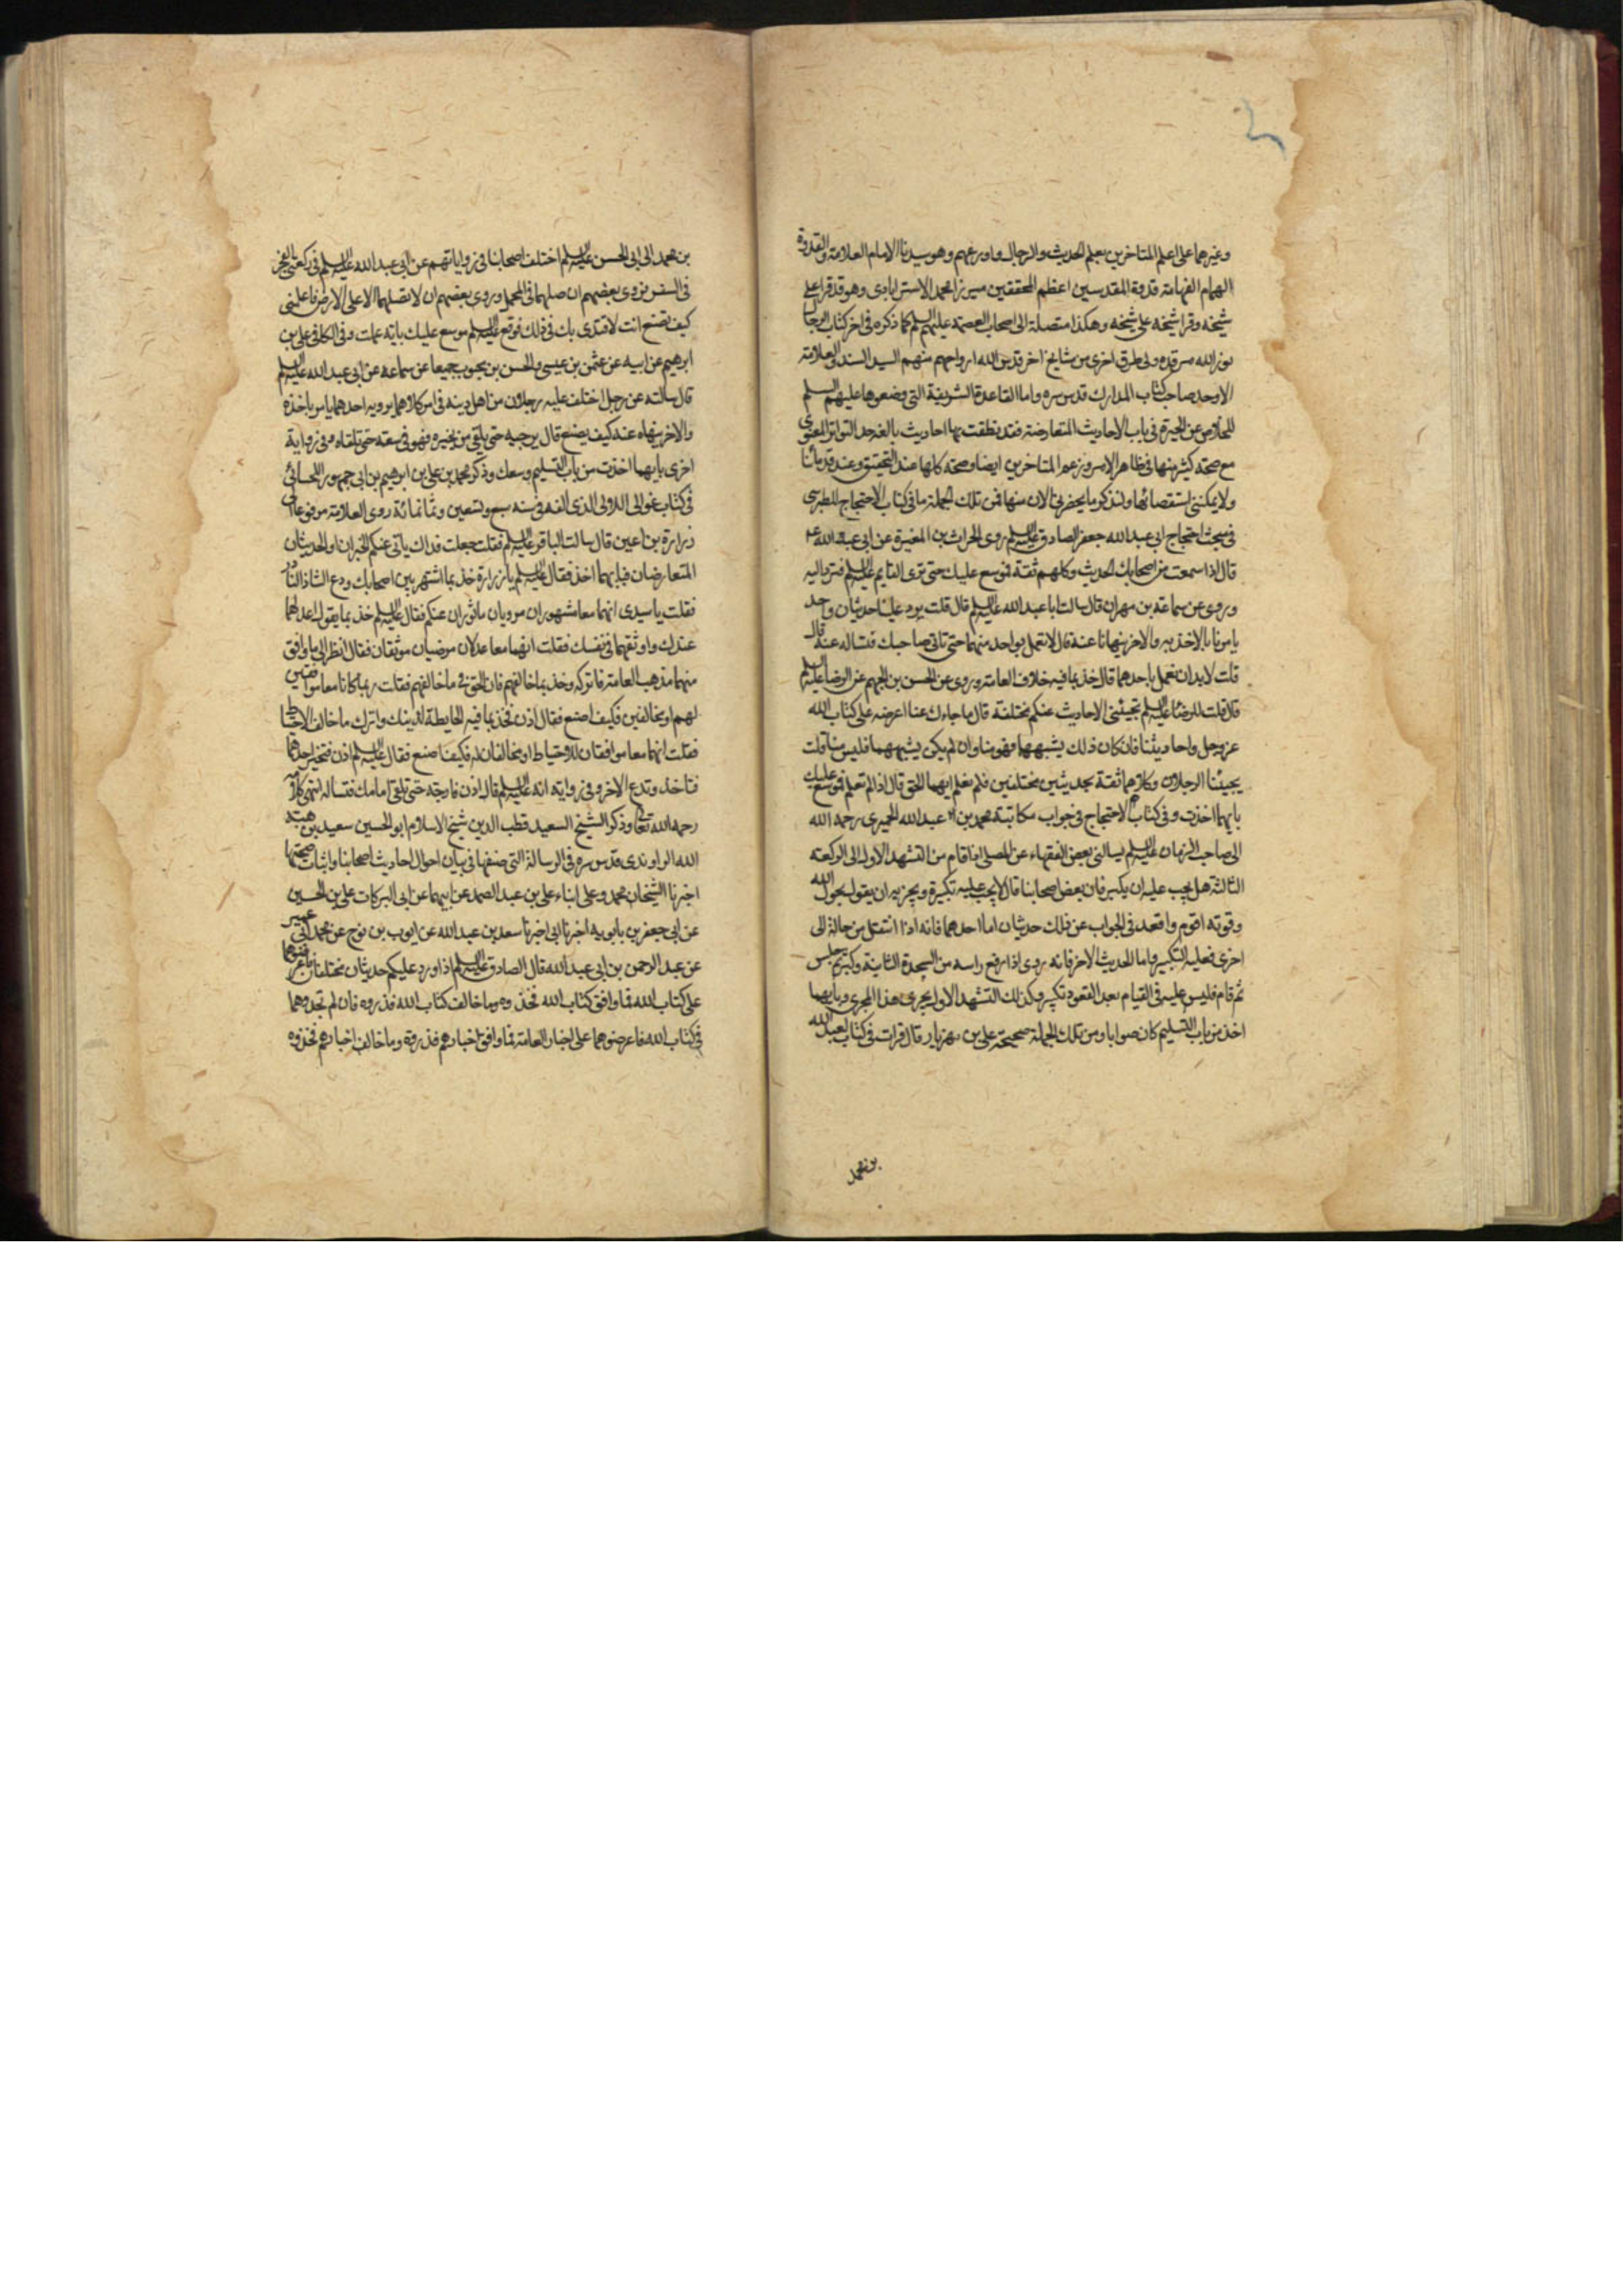 وغيرهما على اعلم المتاخرين بعلم الحديث والرجال واورعهم وهو سيدنا الامام العلامة والقدوة
الهمام الفهامة قدوة المقدسين اعظم المحققين ميرزا محمد الاسترابادى وهو قد قرا على
شيخه وقرا شيخه على شيخه وهكذا متصلة الى اصحاب العصمة عليهم السلم كما ذكره فى اخر كتاب الرجال
نور الله مرقده ولى طرق اخرى من مشايخ اخر قدس الله ارواحهم منهم السيد السند والعلامة
الاوحد صاحب كتاب المدارك قدس سره واما القاعدة الشريفة التى وضعوها عليهم السلم
للخلاص عن الحيرة فى باب الاحاديث المتعارضة فقد نطقت بها احاديث بالغة حد التواتر المعنوى
مع صحة كثير منها فى ظاهر الامر وزعم المتاخرين ايضا وصحة كلها عند التحقيق وعند قدمائنا
ولا يمكننى استقصائها ولنذكر ما يحضرنى الان منها فمن تلك الجملة ما فى كتاب الاحتجاج للطبرسى
فى مبحث احتجاج ابى عبد الله جعفر الصادق عليه السلم روى الحرث بن المغيرة عن ابى عبد الله ع
قال اذا سمعت من اصحابك الحديث وكلهم ثقة فموسع عليك حتى ترى القايم عليه السلم فترد اليه
وروى عن سماعة بن مهران قال سالت ابا عبد الله عليه السلم قال قلت يرد علينا حديثان واحد
يامرنا بالاخذ به والاخر ينهانا عنه قال لا تعمل بواحد منهما حتى تاتى صاحبك فتساله عنه قال
قلت لا بد ان نعمل باحدهما قال خذ بما فيه خلاف العامة وروى عن الحسن بن الجهم عن الرضا عليه السلم
قال قلت للرضا عليه السلم تجيئنى الاحاديث عنكم مختلفة قال ما جاءك عنا اعرضه على كتاب الله
عز وجل واحاديثنا فان كان ذلك يشبهها فهو منا وان لم يكن يشبههما فليس منا قلت
يجيئنا الرجلان وكلاهما ثقة بحديثين مختلفين فلم نعلم ايهما الحق قال اذا لم تعلم فموسع عليك
بايهما اخذت وفى كتاب الاحتجاج فى جواب مكاتبة محمد بن عبد الله الحميرى رحمه الله
الى صاحب الزمان عليه السلم يسالنى بعض الفقهاء عن المصلى اذا قام من التشهد الاول الى الركعة
الثالثة هل يجب عليه ان يكبر فان بعض اصحابنا قال لا يجب عليه تكبيرة ويجزيه ان يقول بحول الله
وقوته اقوم واقعد فى الجواب عن ذلك حديثان اما احدهما فانه اذا انتقل من حالة الى
اخرى فعليه التكبير واما الحديث الاخر فانه روى اذا رفع راسه من السجدة الثانية وكبر ثم جلس
ثم قام فليس عليه فى القيام بعد القعود تكبير وكذلك التشهد الاول يجرى هذا المجرى وبايهما
اخذ من باب التسليم كان صوابا ومن تلك الجملة صحيحة على بن مهزيار قال قرات فى كتاب لعبد الله
بن محمد
بن محمد الى ابى الحسن عليه السلم اختلف اصحابنا فى رواياتهم عن ابى عبد الله عليه السلم فى ركعتى الفجر
فى السفر فروى بعضهم ان صلهما فى المحمل وروى بعضهم ان لا تصلهما الا على الارض فاعلمنى
كيف تصنع انت لاقتدى بك فى ذلك فوقع عليه السلم موسع عليك باية عملت وفى الكافى على بن
ابرهيم عن ابيه عن عثمن بن عيسى والحسن بن محبوب جميعا عن سماعة عن ابى عبد الله عليه السلم
قال سالته عن رجل اختلف عليه رجلان من اهل دينه فى امر كلاهما يرويه احدهما يامر باخذه
والاخر ينهاه عنه كيف يصنع قال يرجيه حتى يلقى من يخبره فهو فى سعة حتى تلقاه وفى رواية
اخرى بايهما اخذت من باب التسليم وسعك وذكر محمد بن على بن ابرهيم بن ابى جمهور اللحسائى
فى كتاب غوالى اللالى الذى الفه فى سنة سبع وتسعين وثمانمائة روى العلامة مرفوعا الى
زرارة بن اعين قال سالت الباقر عليه السلم فقلت جعلت فداك ياتى عنكم الخبران او الحديثان
المتعارضان فبايهما اخذ فقال عليه السلم يا زرارة خذ بما اشتهر بين اصحابك ودع الشاذ النادر
فقلت يا سيدى انهما معا مشهوران مرويان ماثوران عنكم فقال عليه السلم خذ بما يقول اعدلهما
عندك واوثقهما فى نفسك فقلت انهما معا عدلان مرضيان موثقان فقال انظر الى ما وافق
منهما مذهب العامة فاتركه وخذ بما خالفهم فان الحق فى ما خالفهم فقلت ربما كانا معا موافقين
لهم او مخالفين فكيف اصنع فقال اذن فخذ بما فيه الحايطة لدينك واترك ما خالف الاحتياط
فقلت انهما معا موافقان للاحتياط او مخالفان له فكيف اصنع فقال عليه السلم اذن فتخير احدهما
فتاخذ وتدع الاخر وفى رواية انه عليه السلم قال اذن فارجه حتى تلقى امامك فتساله انتهى كلامه
رحمه الله تعالى وذكر الشيخ السعيد قطب الدين شيخ الاسلام ابو الحسين سعيد بن هبة
الله الراوندى قدس سره فى الرسالة التى صنفها فى بيان احوال احاديث اصحابنا واثبات صحتها
اخبرنا الشيخان محمد وعلى ابناء على بن عبد الصمد عن ابيهما عن ابى البركات على بن الحسين
عن ابى جعفر بن بابويه اخبرنا ابى اخبرنا سعد بن عبد الله عن ايوب بن نوح عن محمد ابى عمير
عن عبد الرحمن بن ابى عبد الله قال الصادق عليه السلم اذا ورد عليكم حديثان مختلفان فاعرضوهما
على كتاب الله فما وافق كتاب الله فخذوه وما خالف كتاب الله فذروه فان لم تجدوهما
فى كتاب الله فاعرضوهما على اخبار العامة فما وافق اخبارهم فذروه وما خالف اخبارهم فخذوه